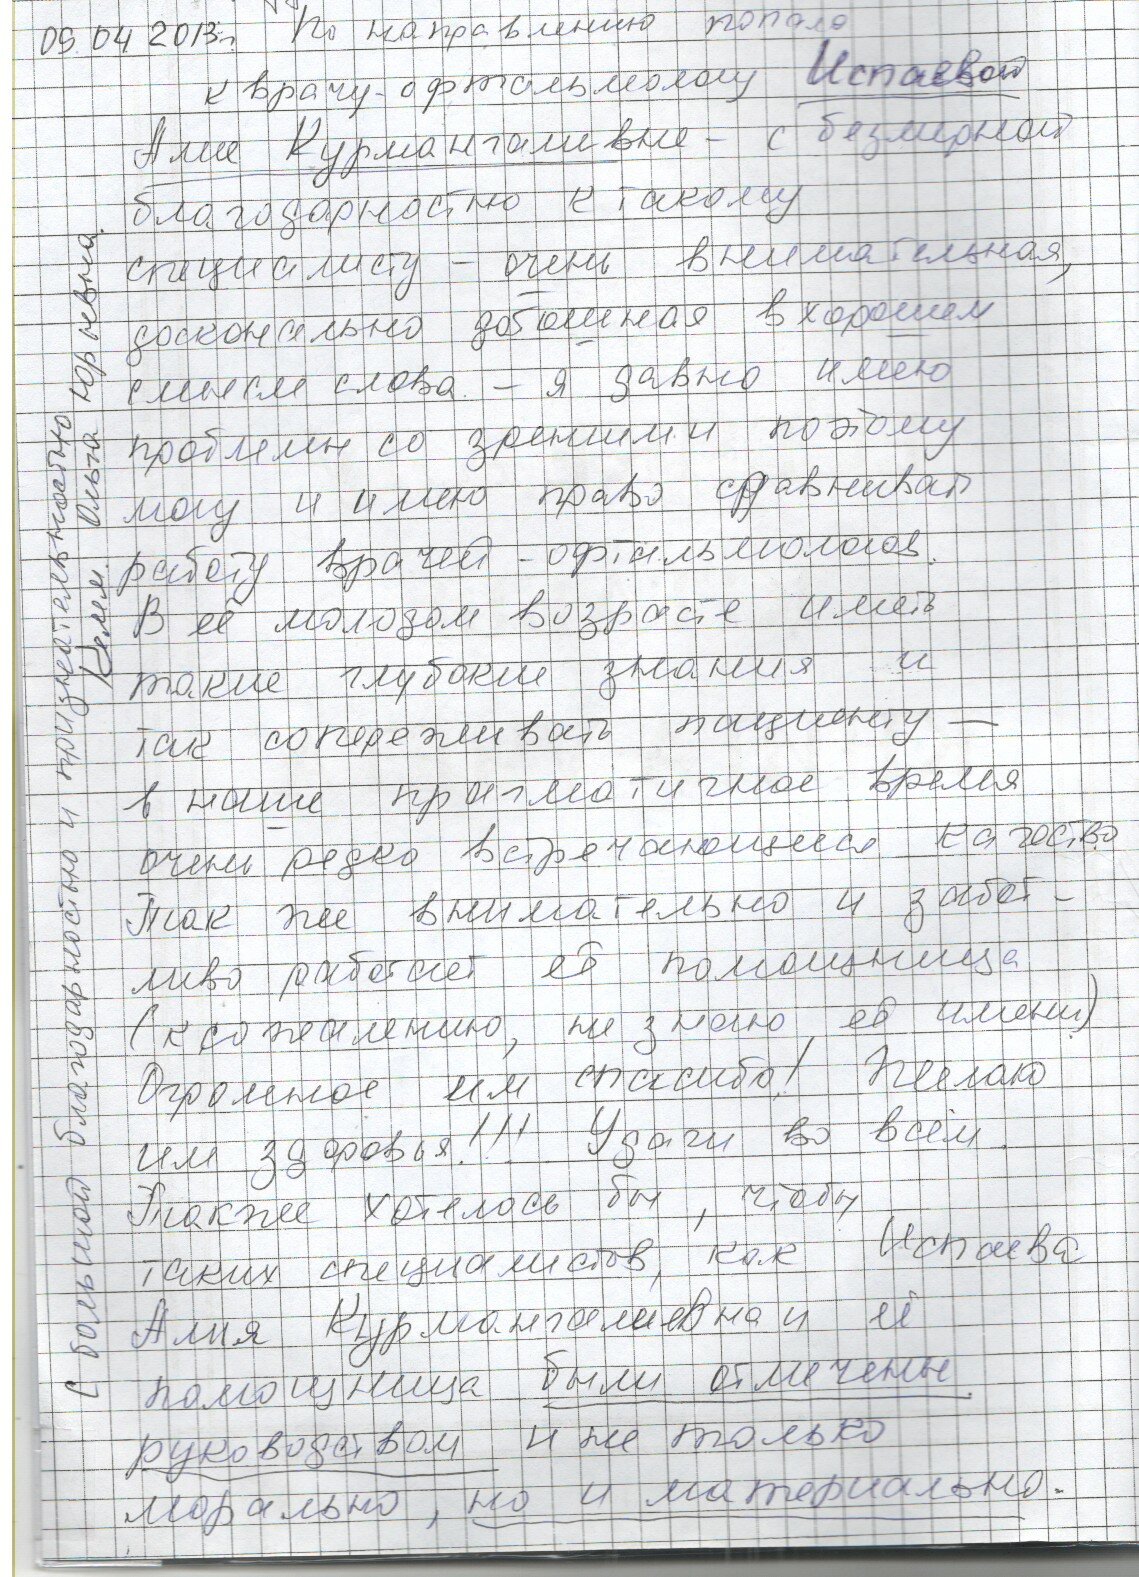 09.04 2013г. По направлению попала
к врачу-офтальмологу Испаевой
Алие Курмангалиевне - с безмерной
благодарностью к такому
специалисту - очень внимательная,
досконально добошная в хорошем
смысле слова. - я давно имею
проблемы со зрением и поэтому
могу и имею право сравнивать
работу врачей-офтальмологов.
В её молодом возрасте иметь
такие глубокие знания и
так сопереживать пациенту —
в наше прагматичное время
очень редко встречающееся качество
Так же внимательно и забот-
ливо работает её помощница
(к сожалению, не знаю её имени)
Огромное им спасибо! Желаю
им здоровья!!! Удачи во всём.
Также хотелось бы, чтобы
таких специалистов, как Испаева
Алия Курмангалиевна и её
помощница были отмечены
руководством и не только
морально, но и материально.
С большой благодарностью и признательностью
Ольга Юрьевна.